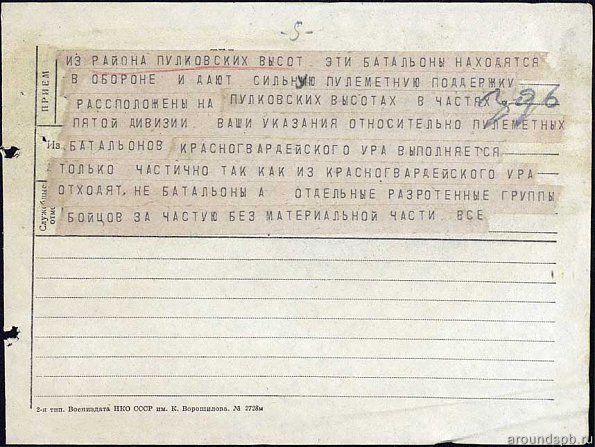 -5-
ИЗ РАЙОНА ПУЛКОВСКИХ ВЫСОТ. ЭТИ БАТАЛЬОНЫ НАХОДЯТСЯ
В ОБОРОНЕ И ДАЮТ СИЛЬНУЮ ПУЛЕМЕТНУЮ ПОДДЕРЖКУ
РАССПОЛОЖЕНЫ НА ПУЛКОВСКИХ ВЫСОТАХ В ЧАСТЯХ
ПЯТОЙ ДИВИЗИИ. ВАШИ УКАЗАНИЯ ОТНОСИТЕЛЬНО ПУЛЕМЕТНЫХ
БАТАЛЬОНОВ КРАСНОГВАРДЕЙСКОГО УРА ВЫПОЛНЯЕТСЯ
ТОЛЬКО ЧАСТИЧНО ТАК КАК ИЗ КРАСНОГВАРДЕЙСКОГО УРА
ОТХОДЯТ, НЕ БАТАЛЬОНЫ А ОТДЕЛЬНЫЕ РАЗРОТЕННЫЕ ГРУППЫ
БОЙЦОВ ЗА ЧАСТУЮ БЕЗ МАТЕРИАЛЬНОЙ ЧАСТИ. ВСЕ
ПРИЕМ
Из
Служебные
2-я тип. Воениздата НКО СССР им. К. Ворошилова. № 2728м
aroundspb.ru